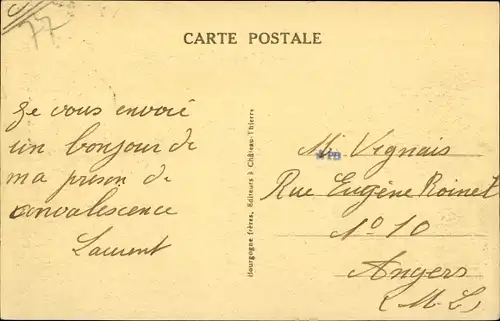 77
CARTE POSTALE
Je vous envoie
un bonjour de
ma prison de
convalescence
Laurent
Bourgogne frères, Editeurs à Château-Thierry
Mr Vignais
Rue Eugène Roinet
No 10
Angers
(M. L)